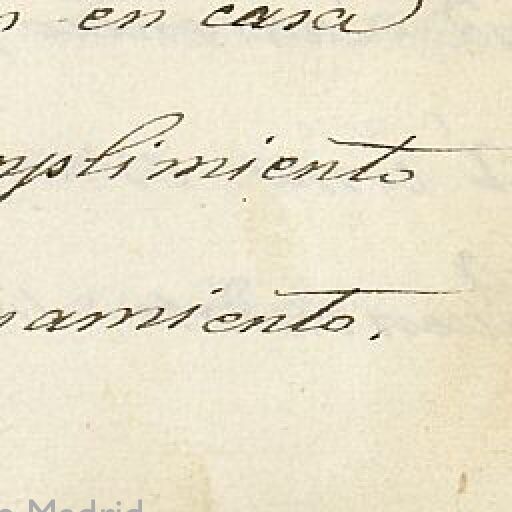 n en casa
mplimiento
samiento.
Madrid